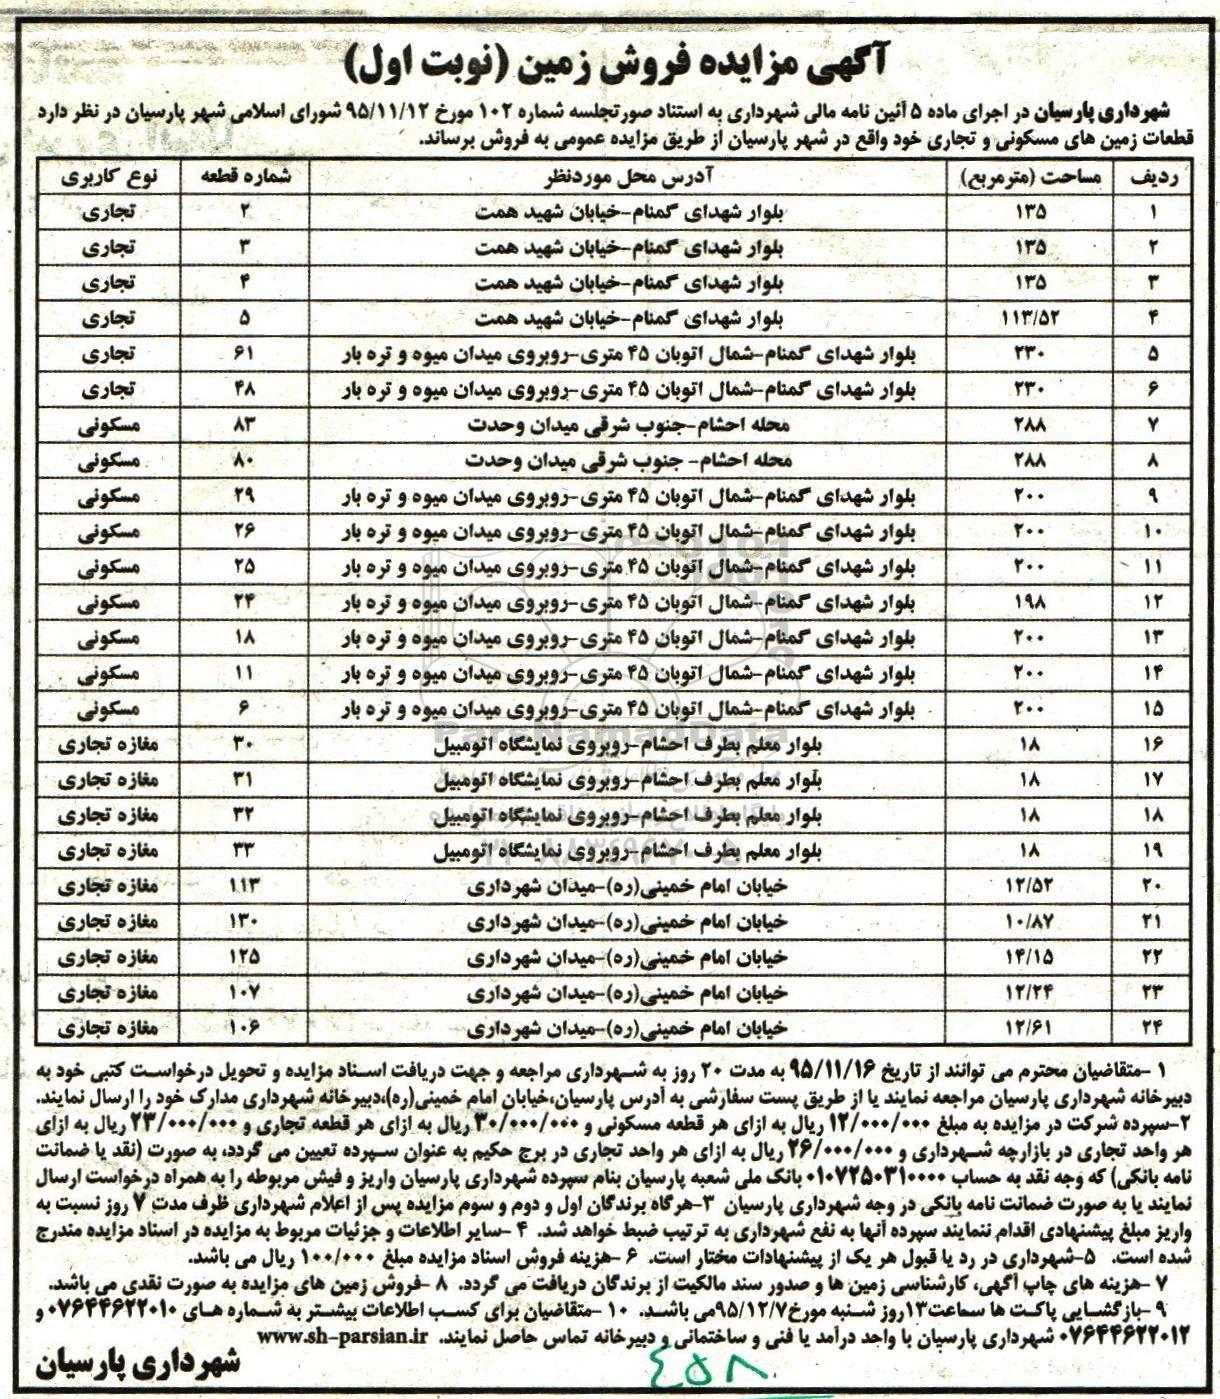 آگهی مزایده فروش زمین (نوبت اول)
شهرداری پارسیان در اجرای ماده ۵ آئین نامه مالی شهرداری به استناد صورتجلسه شماره ۱۰۲ مورخ ۹۵/۱۱/۱۲ شورای اسلامی شهر پارسیان در نظر دارد
قطعات زمین های مسکونی و تجاری خود واقع در شهر پارسیان از طریق مزایده عمومی به فروش برساند.
ردیف مساحت (مترمربع) آدرس محل موردنظر شماره قطعه نوع کاربری
۱ ۱۳۵ بلوار شهدای گمنام-خیابان شهید همت ۲ تجاری
۲ ۱۳۵ بلوار شهدای گمنام-خیابان شهید همت ۳ تجاری
۳ ۱۳۵ بلوار شهدای گمنام-خیابان شهید همت ۴ تجاری
۴ ۱۱۳/۵۲ بلوار شهدای گمنام-خیابان شهید همت ۵ تجاری
۵ ۲۳۰ بلوار شهدای گمنام-شمال اتوبان ۴۵ متری-روبروی میدان میوه و تره بار ۶۱ تجاری
۶ ۲۳۰ بلوار شهدای گمنام-شمال اتوبان ۴۵ متری-روبروی میدان میوه و تره بار ۴۸ تجاری
۷ ۲۸۸ محله احشام-جنوب شرقی میدان وحدت ۸۳ مسکونی
۸ ۲۸۸ محله احشام- جنوب شرقی میدان وحدت ۸۰ مسکونی
۹ ۲۰۰ بلوار شهدای گمنام-شمال اتوبان ۴۵ متری-روبروی میدان میوه و تره بار ۲۹ مسکونی
۱۰ ۲۰۰ بلوار شهدای گمنام-شمال اتوبان ۴۵ متری-روبروی میدان میوه و تره بار ۲۶ مسکونی
۱۱ ۲۰۰ بلوار شهدای گمنام-شمال اتوبان ۴۵ متری-روبروی میدان میوه و تره بار ۲۵ مسکونی
۱۲ ۱۹۸ بلوار شهدای گمنام-شمال اتوبان ۴۵ متری-روبروی میدان میوه و تره بار ۲۴ مسکونی
۱۳ ۲۰۰ بلوار شهدای گمنام-شمال اتوبان ۴۵ متری-روبروی میدان میوه و تره بار ۱۸ مسکونی
۱۴ ۲۰۰ بلوار شهدای گمنام-شمال اتوبان ۴۵ متری-روبروی میدان میوه و تره بار ۱۱ مسکونی
۱۵ ۲۰۰ بلوار شهدای گمنام-شمال اتوبان ۴۵ متری-روبروی میدان میوه و تره بار ۶ مسکونی
۱۶ ۱۸ بلوار معلم بطرف احشام-روبروی نمایشگاه اتومبیل ۳۰ مغازه تجاری
۱۷ ۱۸ بلوار معلم بطرف احشام-روبروی نمایشگاه اتومبیل ۳۱ مغازه تجاری
۱۸ ۱۸ بلوار معلم بطرف احشام-روبروی نمایشگاه اتومبیل ۳۲ مغازه تجاری
۱۹ ۱۸ بلوار معلم بطرف احشام-روبروی نمایشگاه اتومبیل ۳۳ مغازه تجاری
۲۰ ۱۲/۵۲ خیابان امام خمینی(ره)-میدان شهرداری ۱۱۳ مغازه تجاری
۲۱ ۱۰/۸۷ خیابان امام خمینی(ره)-میدان شهرداری ۱۳۰ مغازه تجاری
۲۲ ۱۴/۱۵ خیابان امام خمینی(ره)-میدان شهرداری ۱۲۵ مغازه تجاری
۲۳ ۱۲/۲۴ خیابان امام خمینی(ره)-میدان شهرداری ۱۰۷ مغازه تجاری
۲۴ ۱۲/۶۱ خیابان امام خمینی(ره)-میدان شهرداری ۱۰۶ مغازه تجاری
ParsNamadData
۱ -متقاضیان محترم می توانند از تاریخ ۹۵/۱۱/۱۶ به مدت ۲۰ روز به شهرداری مراجعه و جهت دریافت اسناد مزایده و تحویل درخواست کتبی خود به
دبیرخانه شهرداری پارسیان مراجعه نمایند یا از طریق پست سفارشی به آدرس پارسیان،خیابان امام خمینی(ره)،دبیرخانه شهرداری مدارک خود را ارسال نمایند.
۲-سپرده شرکت در مزایده به مبلغ ۱۲/۰۰۰/۰۰۰ ریال به ازای هر قطعه مسکونی و ۳۰/۰۰۰/۰۰۰ ریال به ازای هر قطعه تجاری و ۲۳/۰۰۰/۰۰۰ ریال به ازای
هر واحد تجاری در بازارچه شهرداری و ۲۶/۰۰۰/۰۰۰ ریال به ازای هر واحد تجاری در برج حکیم به عنوان سپرده تعیین می گردد، به صورت (نقد یا ضمانت
نامه بانکی) که وجه نقد به حساب ۰۱۰۷۲۵۰۳۱۰۰۰۰ بانک ملی شعبه پارسیان بنام سپرده شهرداری پارسیان واریز و فیش مربوطه را به همراه درخواست ارسال
نمایند یا به صورت ضمانت نامه بانکی در وجه شهرداری پارسیان ۳-هرگاه برندگان اول و دوم و سوم مزایده پس از اعلام شهرداری ظرف مدت ۷ روز نسبت به
واریز مبلغ پیشنهادی اقدام ننمایند سپرده آنها به نفع شهرداری به ترتیب ضبط خواهد شد. ۴ -سایر اطلاعات و جزئیات مربوط به مزایده در اسناد مزایده مندرج
شده است. ۵-شهرداری در رد یا قبول هر یک از پیشنهادات مختار است. ۶ -هزینه فروش اسناد مزایده مبلغ ۱۰۰/۰۰۰ ریال می باشد.
۷ -هزینه های چاپ آگهی، کارشناسی زمین ها و صدور سند مالکیت از برندگان دریافت می گردد. ۸ -فروش زمین های مزایده به صورت نقدی می باشد.
۹ -بازگشایی پاکت ها ساعت۱۳روز شنبه مورخ۹۵/۱۲/۷می باشد. ۱۰ -متقاضیان برای کسب اطلاعات بیشتر به شماره های ۰۷۶۴۴۶۲۲۰۱۰ و
۰۷۶۴۴۶۲۲۰۱۲ شهرداری پارسیان با واحد درآمد یا فنی و ساختمانی و دبیرخانه تماس حاصل نمایند. www.sh-parsian.ir
شهرداری پارسیان
۴۵۸